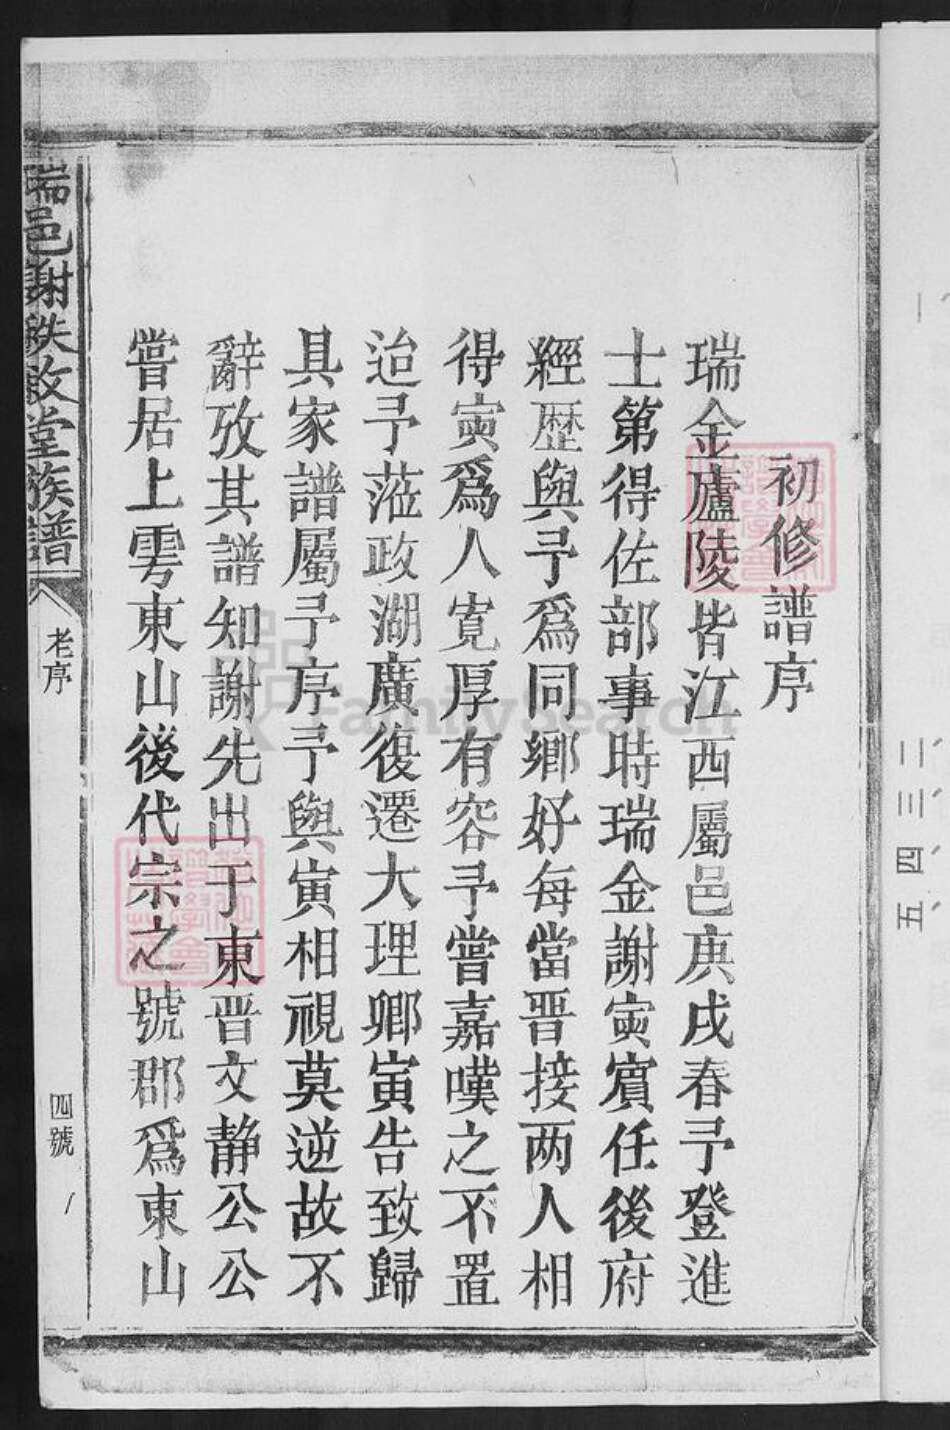 初修譜序
瑞金廬陵皆江西屬邑庚戌春予登進
士第得佐部事時瑞金謝寅賓任後府
經歷與予爲同鄉好每當晋接两人相
得寅爲人寬厚有容予嘗嘉嘆之不置
迨予蒞政湖廣復遷大理卿寅告致歸
具家譜屬予序予與寅相視莫逆故不
辭攷其譜知謝先出于東晋文静公公
嘗居上雩東山後代宗之號郡爲東山
瑞邑謝秩敘堂族譜
老序
四號
FamilySearch
一
二
三
四
五